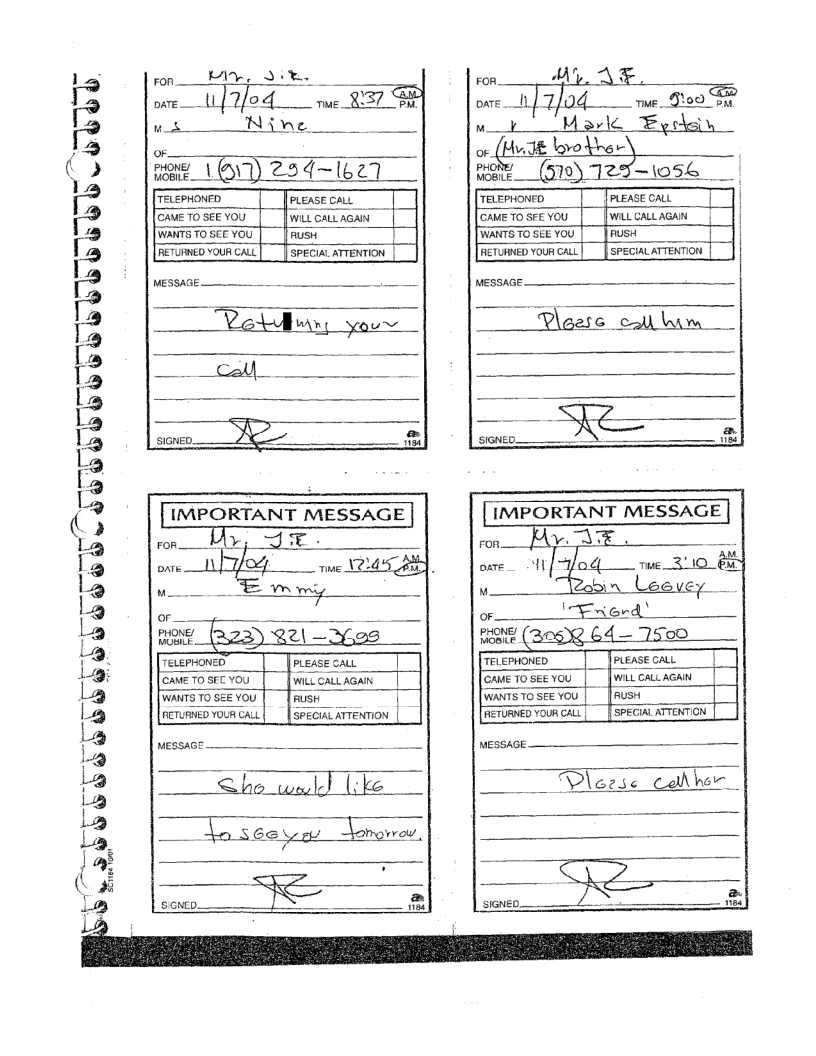 FOR Mr. J.E.
DATE 11/7/04 TIME 8:37 A.M. P.M.
M s Nine
OF
PHONE/ MOBILE 1 (917) 294-1627
TELEPHONED PLEASE CALL
CAME TO SEE YOU WILL CALL AGAIN
WANTS TO SEE YOU RUSH
RETURNED YOUR CALL SPECIAL ATTENTION
MESSAGE
Returning your
Call
SIGNED
1184
FOR Mr. J.E.
DATE 11/7/04 TIME 9:00 A.M. P.M.
M r Mark Epstein
OF (Mr. JE brother)
PHONE/ MOBILE (570) 729-1056
TELEPHONED PLEASE CALL
CAME TO SEE YOU WILL CALL AGAIN
WANTS TO SEE YOU RUSH
RETURNED YOUR CALL SPECIAL ATTENTION
MESSAGE
Please call him
SIGNED
1184
IMPORTANT MESSAGE
FOR Mr. J.E.
DATE 11/7/04 TIME 12:45 A.M. P.M.
M Emmy
OF
PHONE/ MOBILE (323) 821-3699
TELEPHONED PLEASE CALL
CAME TO SEE YOU WILL CALL AGAIN
WANTS TO SEE YOU RUSH
RETURNED YOUR CALL SPECIAL ATTENTION
MESSAGE
She would like
to see you tomorrow.
SIGNED
1184
IMPORTANT MESSAGE
FOR Mr. J.E.
DATE 11/7/04 TIME 3:10 A.M. P.M.
M Robin Leevey
OF 'Friend'
PHONE/ MOBILE (305) 864-7500
TELEPHONED PLEASE CALL
CAME TO SEE YOU WILL CALL AGAIN
WANTS TO SEE YOU RUSH
RETURNED YOUR CALL SPECIAL ATTENTION
MESSAGE
Please call her
SIGNED
1184